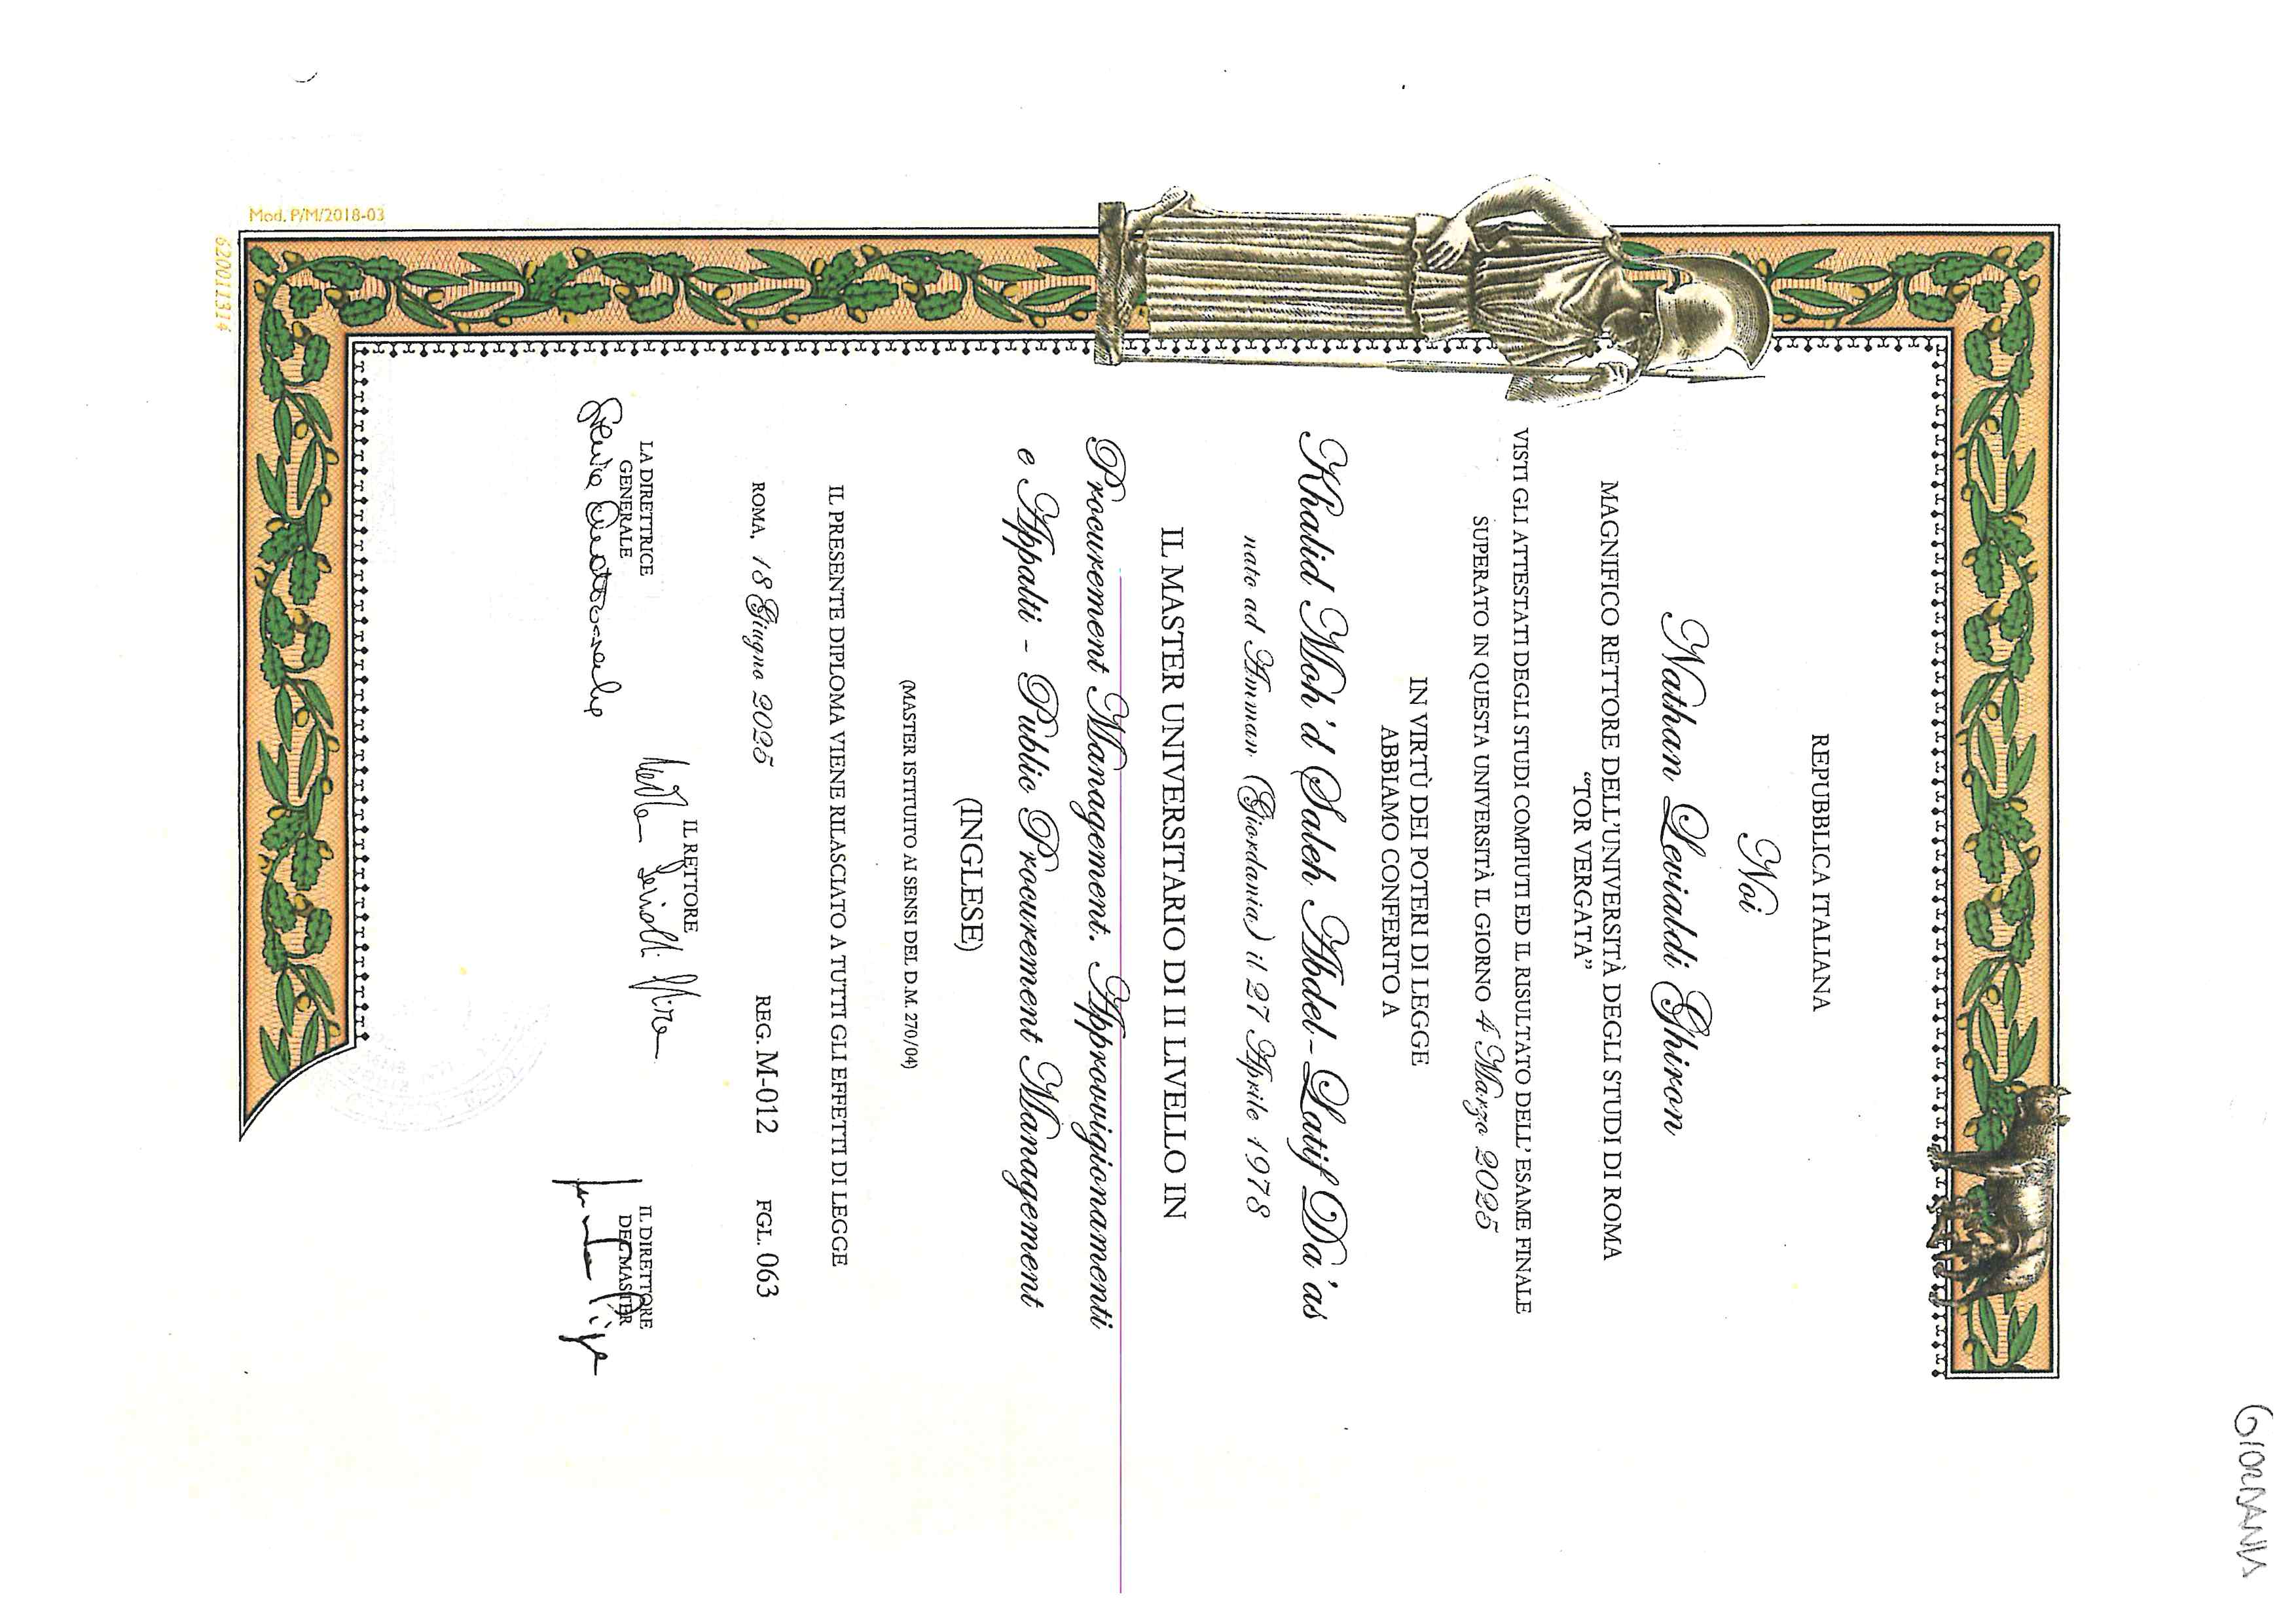 GIORDANIA
REPUBBLICA ITALIANA
Noi
Nathan Levialdi Ghiron
MAGNIFICO RETTORE DELL'UNIVERSITÀ DEGLI STUDI DI ROMA
“TOR VERGATA”
VISTI GLI ATTESTATI DEGLI STUDI COMPIUTI ED IL RISULTATO DELL' ESAME FINALE
SUPERATO IN QUESTA UNIVERSITÀ IL GIORNO 4 Marzo 2025
IN VIRTÙ DEI POTERI DI LEGGE
ABBIAMO CONFERITO A
Khalid Moh'd Saleh Abdel-Latif Da'as
nato ad Amman (Giordania) il 27 Aprile 1978
IL MASTER UNIVERSITARIO DI II LIVELLO IN
Procurement Management. Approvvigionamenti
e Appalti - Public Procurement Management
(INGLESE)
(MASTER ISTITUITO AI SENSI DEL D.M. 270/04)
IL PRESENTE DIPLOMA VIENE RILASCIATO A TUTTI GLI EFFETTI DI LEGGE
ROMA, 18 Giugno 2025 REG. M-012 FGL. 063
LA DIRETTRICE
GENERALE
IL RETTORE
IL DIRETTORE
DEL MASTER
Mod. P/M/2018-03
620U11314